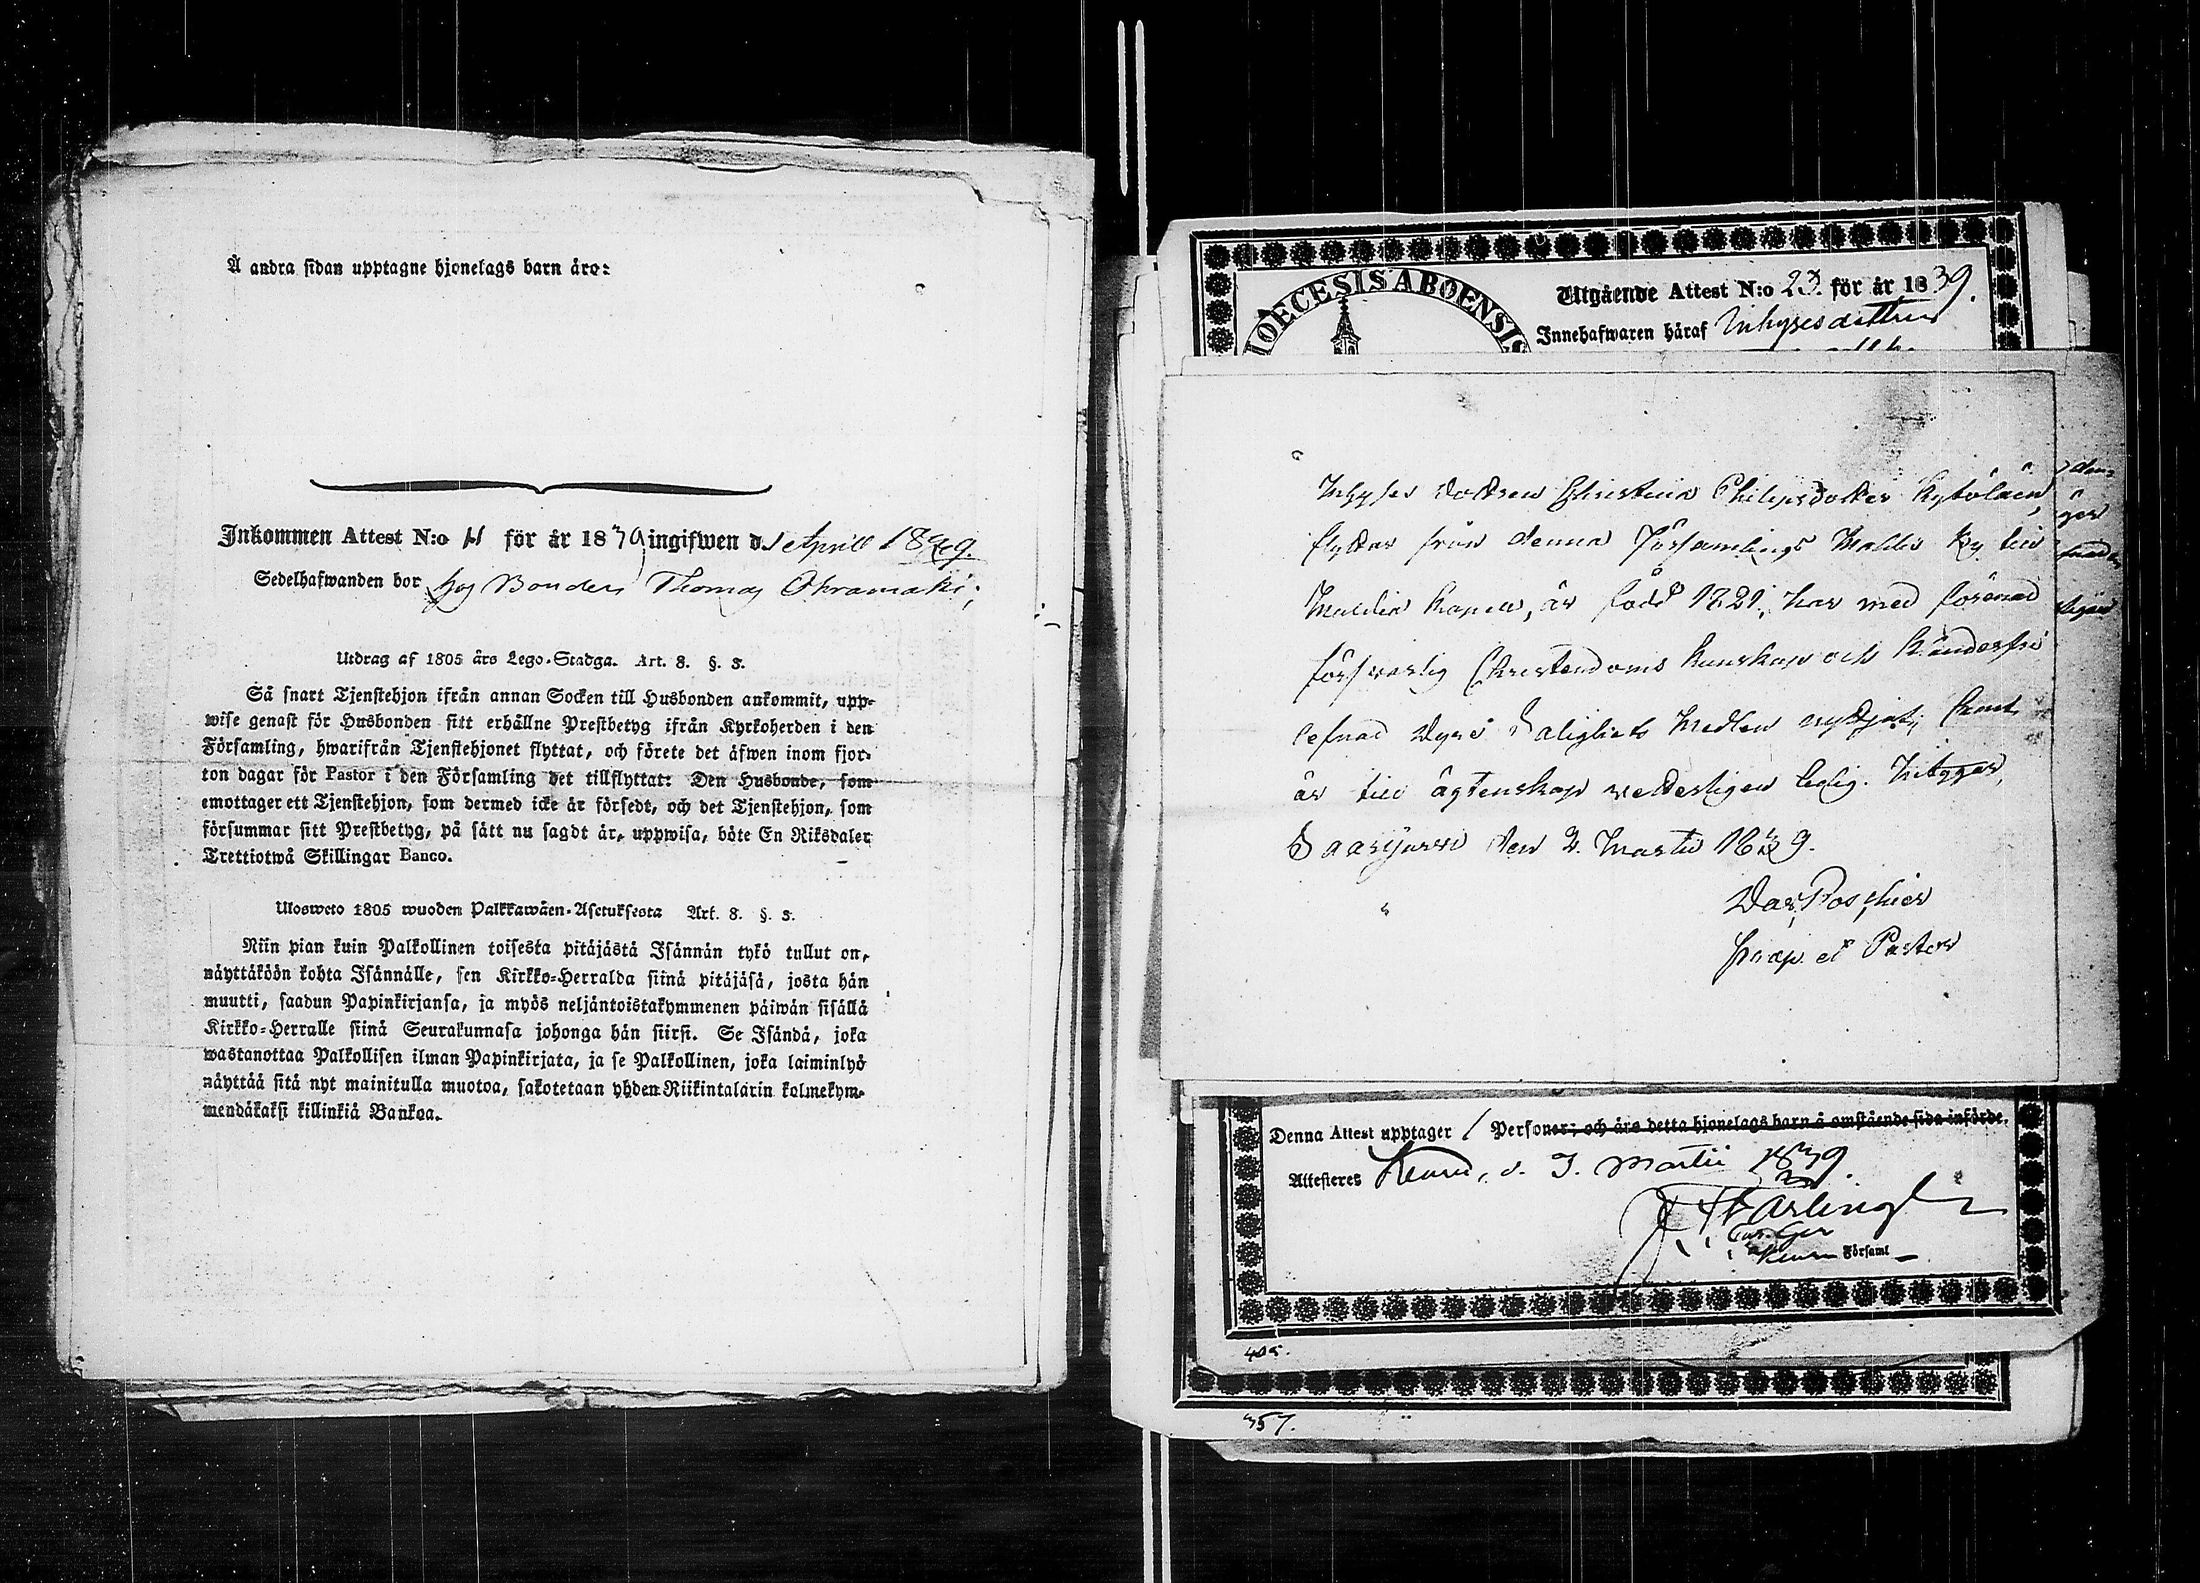 Å andra sidan upptagne hjonelags barn äro:
Inkommen Attest N:o 11 för år 1839 ingifwen d. 1 April 1839.
Sedelhafwanden bor hos Bonden Thomas Ohramäki;
Utdrag af 1805 års Lego-Stadga. Art. 8. §. 3.
Så snart Tjenstehjon ifrån annan Socken till Husbonden ankommit, upp-
wise genast för Husbonden sitt erhållne Prestbetyg ifrån Kyrkoherden i den
Församling, hwarifrån Tjenstehjonet flyttat, och förete det äfwen inom fjor-
ton dagar för Pastor i den Församling det tillflyttat: Den Husbonde, som
emottager ett Tjenstehjon, som dermed icke är försedt, och det Tjenstehjon, som
försummar sitt Prestbetyg, på sätt nu sagdt är, uppwisa, böte En Riksdaler
Trettiotwå Skillingar Banco.
Ulosweto 1805 wuoden Palkkawäen-Asetuksesta Art. 8. §. 3.
Niin pian kuin Palkollinen toisesta pitäjästä Isännän tykö tullut on,
näyttäköön kohta Isännälle, sen Kirkko-Herralda siinä pitäjäsä, josta hän
muutti, saadun Papinkirjansa, ja myös neljäntoistakymmenen päiwän sisällä
Kirkko-Herralle siinä Seurakunnasa johonga hän siirsi. Se Isändä, joka
wastanottaa Palkollisen ilman Papinkirjata, ja se Palkollinen, joka laiminlyö
näyttää sitä nyt mainitulla muotoa, sakotetaan yhden Riikintalarin kolmekym-
mendäkaksi killinkiä Bankoa.
DIOECESIS ABOENSIS
Utgående Attest N:o 23. för år 1839.
Innehafwaren häraf Inhyses dottren
Inhyses dottren Christina Philipsdotter Kytöläen,
flyttar från denna Församlings Mahlu by till
Kapell, är född 1821, har med förenad
försvarlig Christendoms kunskap och klanderfri
lefnad dyra Salighets Medlen nyttjat; samt
är till ägtenskap veterligen ledig. Intygar,
Saarijärvi den 2. Martii 1839.
Dav. Roschier
Præp. et Pastor
Denna Attest upptager 1 Personer; och äro detta hjonelags barn å omstående sida införde.
Attesteres Keuru, d. 3. Martii 1839.
Keuru Församl
405.
357.